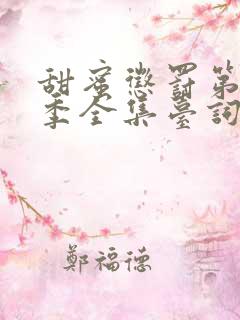 甜蜜懲罰第
季全集臺詞
鄭福德